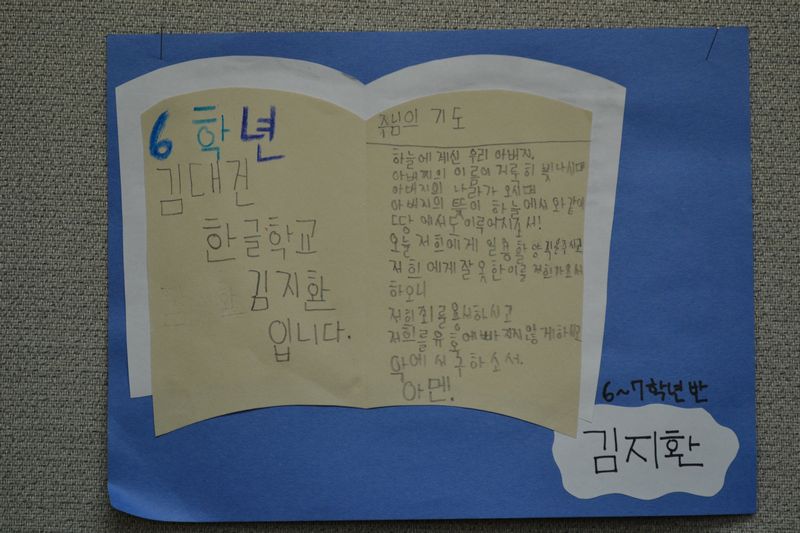 6학년
김대건
한글학교
김지환
입니다.
주님의 기도
하늘에 계신 우리 아버지,
아버지의 이름이 거룩히 빛나시며
아버지의 나라가 오시며
아버지의 뜻이 하늘에서와 같이
땅에서도 이루어지소서!
오늘 저희에게 일용할 양식을 주시고
저희에게 잘못한 이를 저희가 용서
하오니
저희 죄를 용서하시고
저희를 유혹에 빠지지 않게하시고
악에서 구하소서.
아멘!
6~7학년 반
김지환